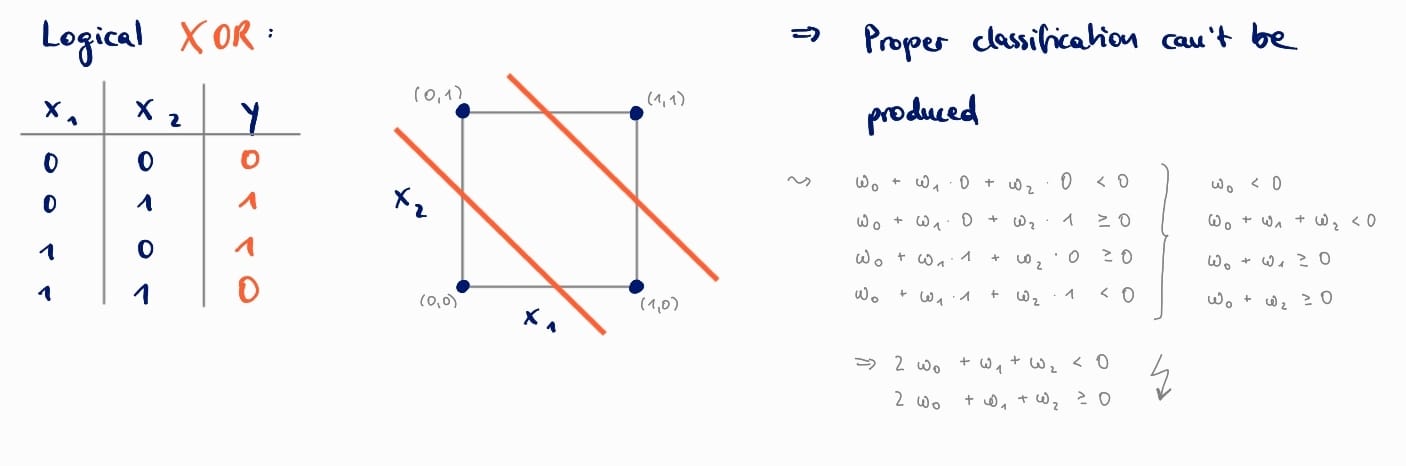 Logical XOR:
x₁ x₂ y
0 0 0
0 1 1
1 0 1
1 1 0
(0,1) (1,1)
x₂
(0,0) (1,0)
x₁
⇒ Proper classification can't be
produced
⇝ ω₀ + ω₁ · 0 + ω₂ · 0 < 0
ω₀ + ω₁ · 0 + ω₂ · 1 ≥ 0
ω₀ + ω₁ · 1 + ω₂ · 0 ≥ 0
ω₀ + ω₁ · 1 + ω₂ · 1 < 0
ω₀ < 0
ω₀ + ω₁ + ω₂ < 0
ω₀ + ω₁ ≥ 0
ω₀ + ω₂ ≥ 0
⇒ 2 ω₀ + ω₁ + ω₂ < 0
2 ω₀ + ω₁ + ω₂ ≥ 0